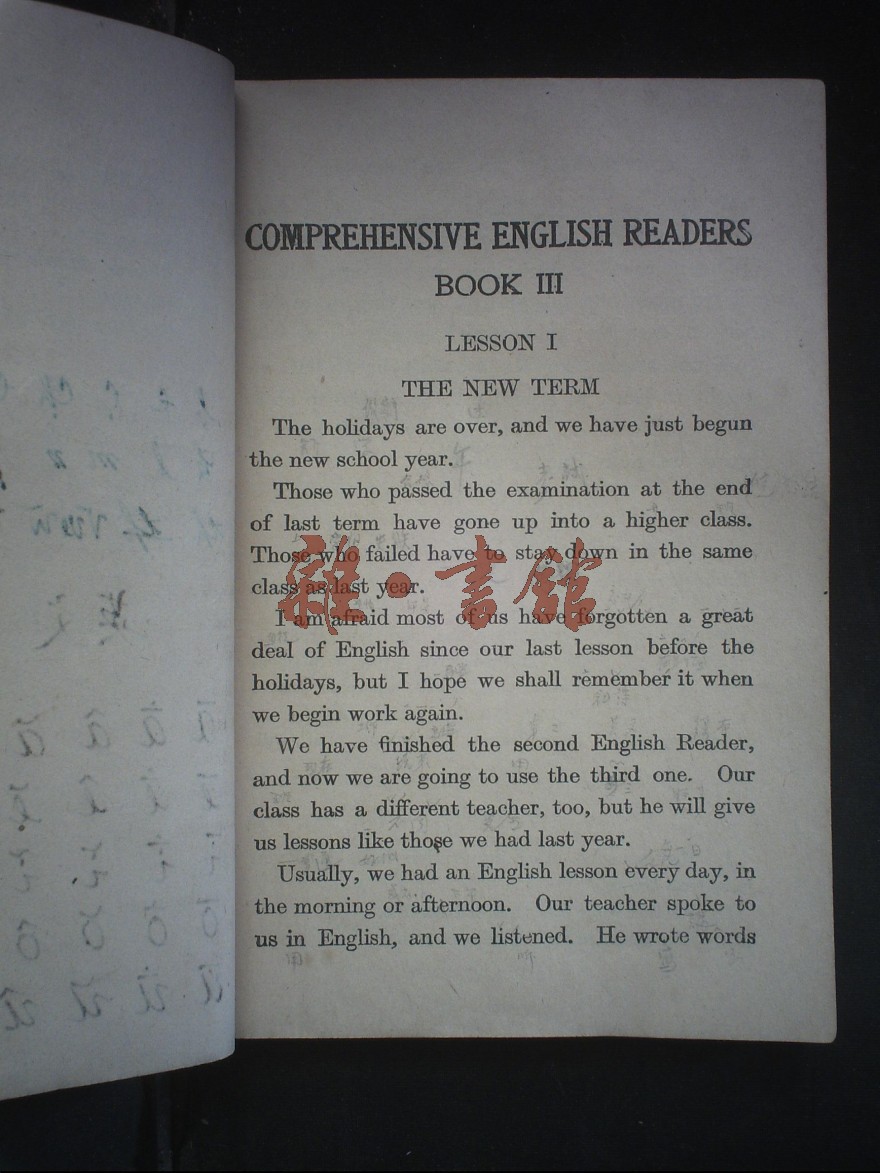 COMPREHENSIVE ENGLISH READERS
BOOK III
LESSON I
THE NEW TERM
The holidays are over, and we have just begun
the new school year.
Those who passed the examination at the end
of last term have gone up into a higher class.
Those who failed have to stay down in the same
class as last year.
I am afraid most of us have forgotten a great
deal of English since our last lesson before the
holidays, but I hope we shall remember it when
we begin work again.
We have finished the second English Reader,
and now we are going to use the third one. Our
class has a different teacher, too, but he will give
us lessons like those we had last year.
Usually, we had an English lesson every day, in
the morning or afternoon. Our teacher spoke to
us in English, and we listened. He wrote words
雜·書館